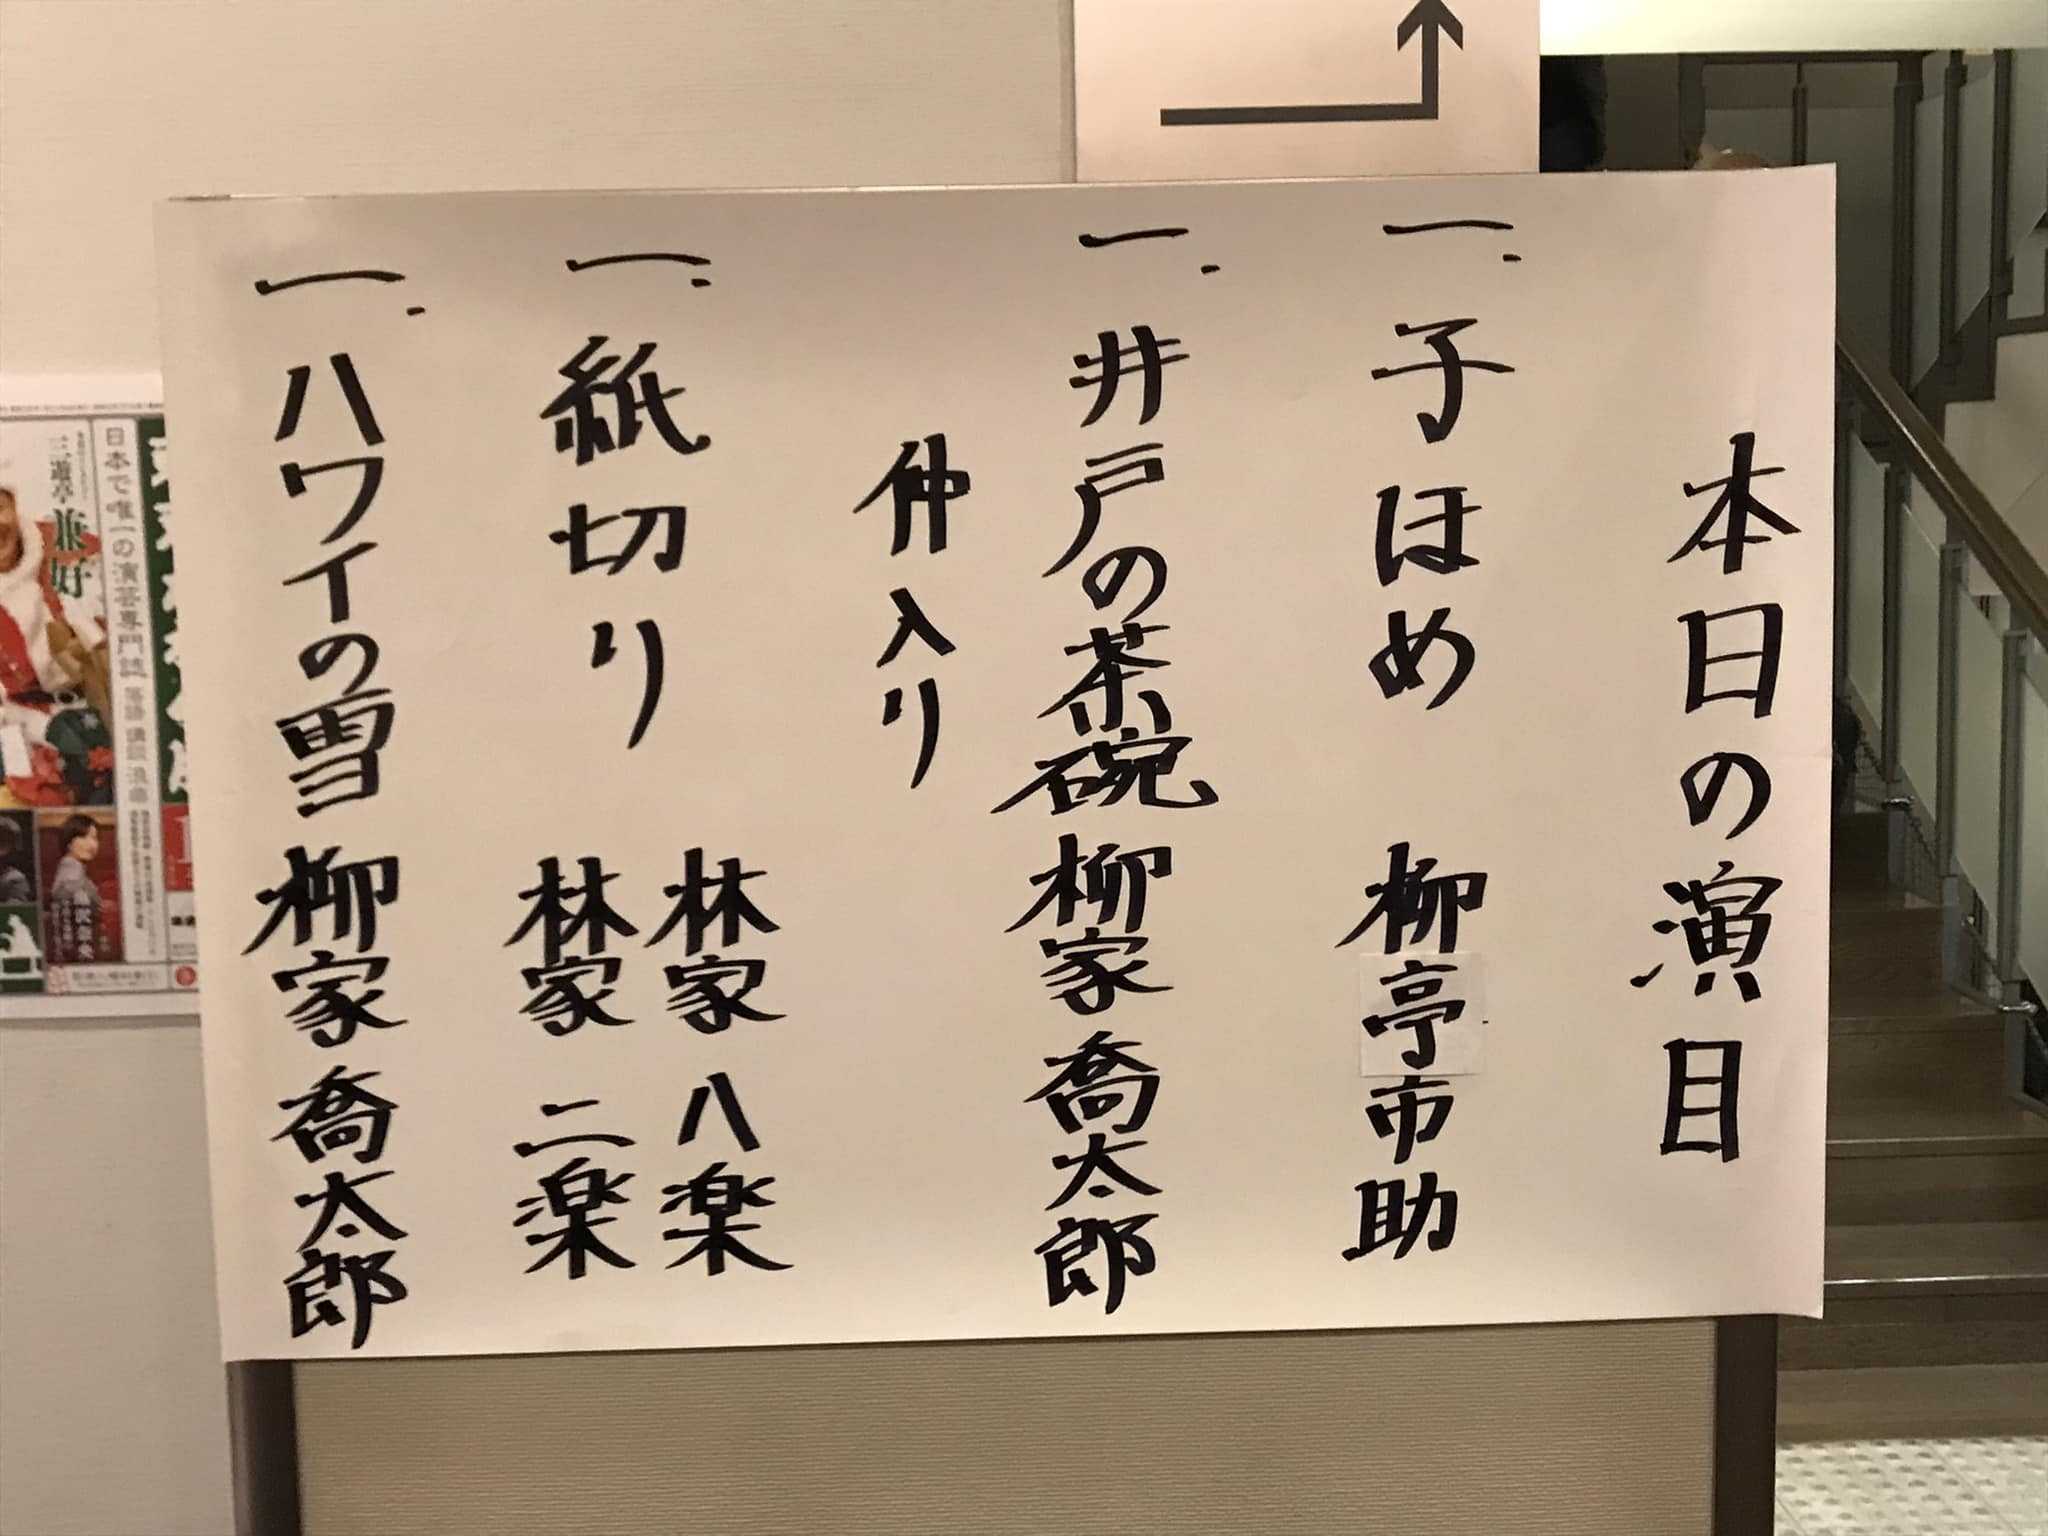 本日の演目
一. 子ほめ 柳亭市助
一. 井戸の茶碗 柳家喬太郎
仲入り
一. 紙切り 林家八楽
林家二楽
一. ハワイの雪 柳家喬太郎
日本で唯一の演芸専門誌 落語 講談 浪曲
三遊亭兼好